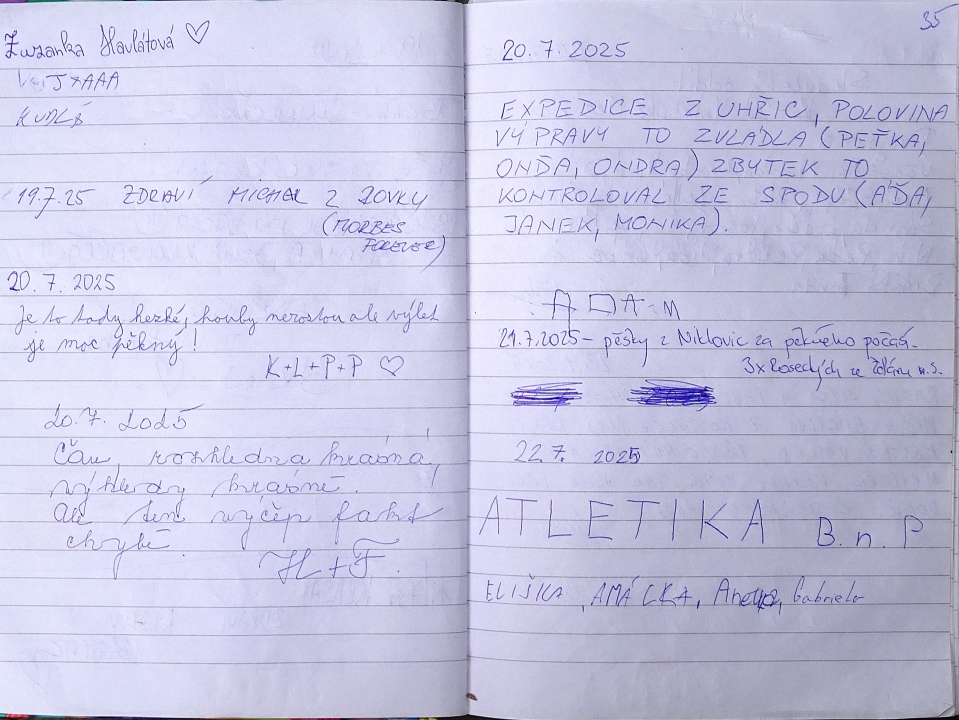 Zuzanka Havlátová ♡
JXAAA
19.7.25 ZDRAVÍ MICHAL Z
(MORBES
FOREVER)
20. 7. 2025
Je to tady hezké, houby nerostou ale výlet
je moc pěkný!
K+L+P+P ♡
20. 7. 2025
Čau, rozhledna krásná,
výhledy krásné.
Ale ten výčep fakt
chybí.
H+F.
35
20. 7. 2025
EXPEDICE Z UHŘIC, POLOVINA
VÝPRAVY TO ZVLÁDLA (PEŤKA,
ONĎA, ONDRA) ZBYTEK TO
KONTROLOVAL ZE SPODU (AĎA,
JANEK, MONIKA).
ADAM
21.7.2025 - pěšky z Niklovic za pěkného počas.
3x Rosedých ze Žďáru n.S.
22 7. 2025
ATLETIKA B. n. P
ELIŠKA, AMÁLKA, Gabriela